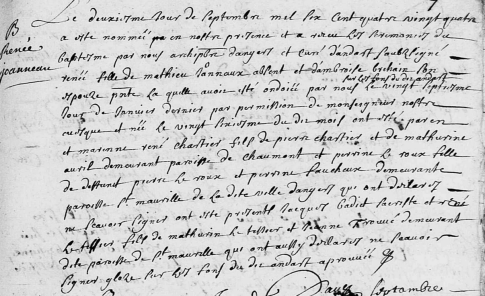 B
renée
Joanneau
Le deuxiesme Jour de septembre mil six cent quatre vingt quatre
a este nommée en nostre presence et a receu les ceremonies du
baptesme par nous archiptre dangers et curé dandart soubzsigné
renée fille de mathieu Jannaux absent et dambroise
espouze pnte la quelle avoit esté ondoiée par nous le vingt septiesme
Jour de Janvier dernier par permission de monseigneur nostre
evesque et née le vingt sixiesme du dit mois ont esté parein
et marainne rené chartier fils de pierre chartier et de mathurine
avril demeurant paroisse de chaumont et perrine le roux fille
de deffunt pierre le roux et perrine faucheux demeurante
paroisse st maurille de la dite ville dangers qui ont declaré
ne scavoir signer ont esté presents Jacques badit sacriste et rené
le tessier fils de mathurin le tessier et demeurant
dite paroisse de st maurille qui ont aussy declaré ne scavoir
signer gloze sur les fons du dit andart aprouvée
septembre